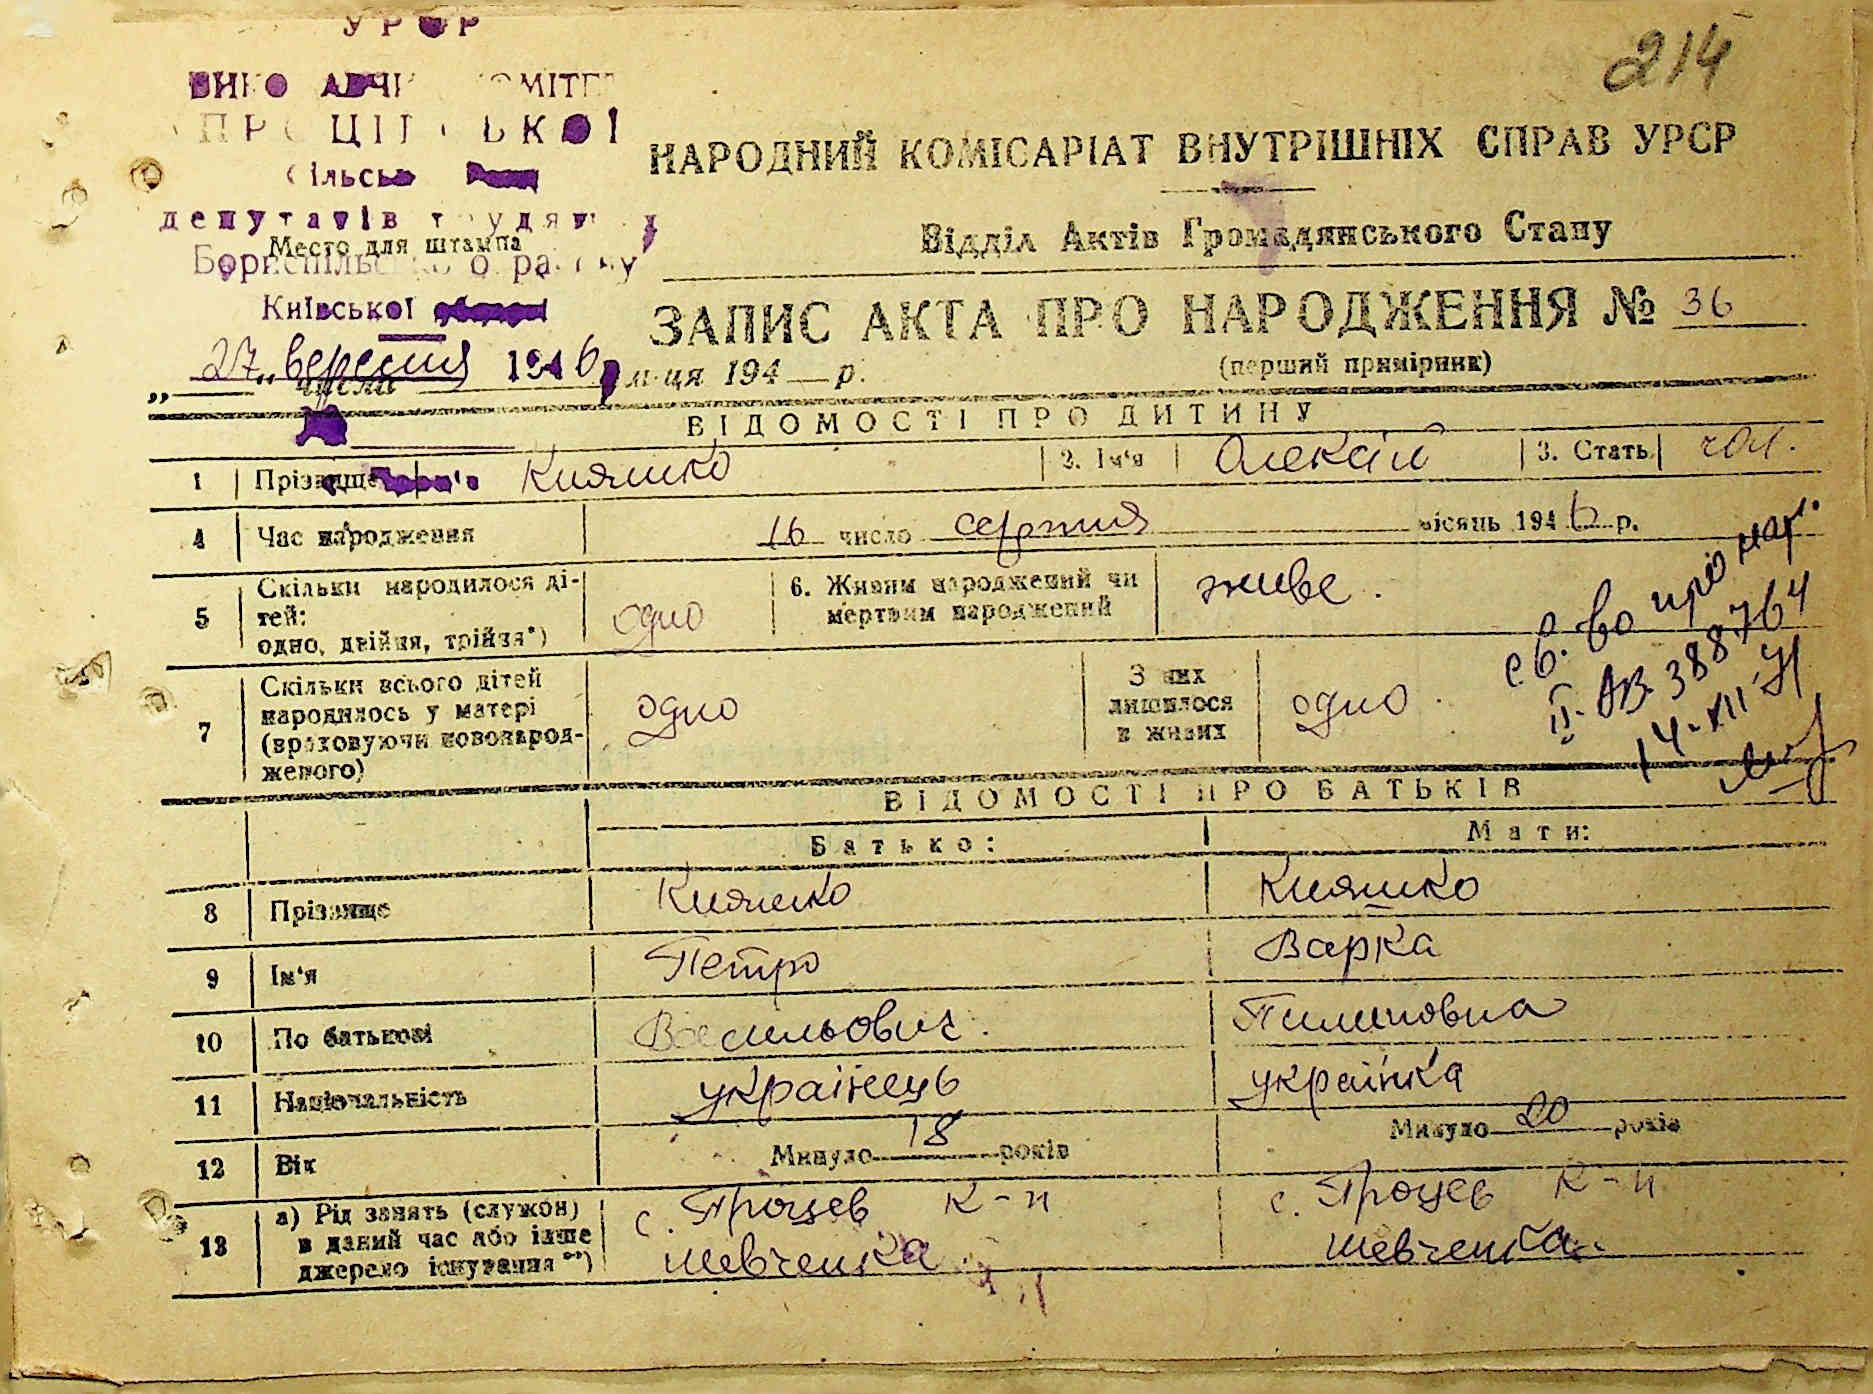 УРСР
214
ПРОЦІВСЬКОЇ
депутатів трудящ
Место для штампа
Бориспільського району
Київської області
НАРОДНИЙ КОМІСАРІАТ ВНУТРІШНІХ СПРАВ УРСР
Відділ Актів Громадянського Стану
ЗАПИС АКТА ПРО НАРОДЖЕННЯ № 36
(перший примірник)
27 вересня 1946
„ числа м-ця 194 р.
ВІДОМОСТІ ПРО ДИТИНУ
1 Прізвище Кияшко 2. Ім'я Олексій 3. Стать чол.
4 Час народження 16 число серпня місяць 1946 р.
5 Скільки народилося ді-
тей:
одно, двійня, трійня*) одно
6. Живим народжений чи
мертвим народжений живе.
7 Скільки всього дітей
народилось у матері
(враховуючи новонарод-
женого) одно
З них
лишилося
в живих одно
св. во про нар.
II-АВ 388764
14-XII-71
ВІДОМОСТІ ПРО БАТЬКІВ
Батько: Мати:
8 Прізвище Кияшко Кияшко
9 Ім'я Петро Варка
10 По батькові Васильович. Пилиповна
11 Національність українець українка
12 Вік Минуло 18 років Минуло 20 років
13 а) Рід занять (служби)
в даний час або інше
джерело існування**)
с. Процев к-п
Шевченка
с. Процев к-п
Шевченка